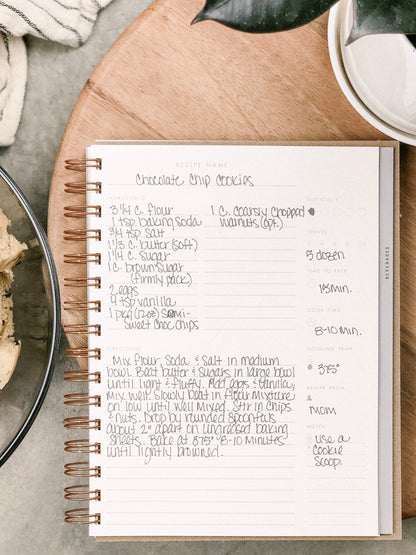 RECIPE NAME
Chocolate Chip Cookies
INGREDIENTS
3 1/4 c. flour
1 tsp baking soda
3/4 tsp salt
1 1/3 c. butter (soft)
1 1/4 c. sugar
1 c. brown sugar
(firmly pack)
2 eggs
4 tsp vanilla
1 pkg (12oz) Semi-
Sweet Choc Chips
1 c. coarsly chopped
walnuts (opt.)
DIRECTIONS
Mix flour, soda & salt in medium
bowl. Beat butter & sugars in large bowl
until light & fluffy. Add eggs & vanilla,
mix well. Slowly beat in flour mixture
on low until well mixed. Stir in chips
& nuts. Drop by rounded spoonfuls
about 2" apart on ungreased baking
sheets. Bake at 375° 8-10 minutes
until lightly browned.
DIFFICULTY
SERVES
5 dozen
TIME TO PREP
15min.
COOK TIME
8-10 min.
COOKING TEMP
375°
RECIPE FROM
mom
NOTES
use a
cookie
scoop.
BEVERAGES